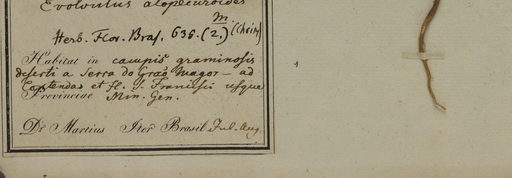 Evolvulus alopecuroides
m.
Herb. Flor. Bras. 636. (2.) (Choisy)
Habitat in campis graminosis
deserti a Serra do Grão Magor – ad
Contendas et fl. S. Francisci usque
Provinciae Min. Gen.
Dr Martius Iter Brasil Jul. Aug.